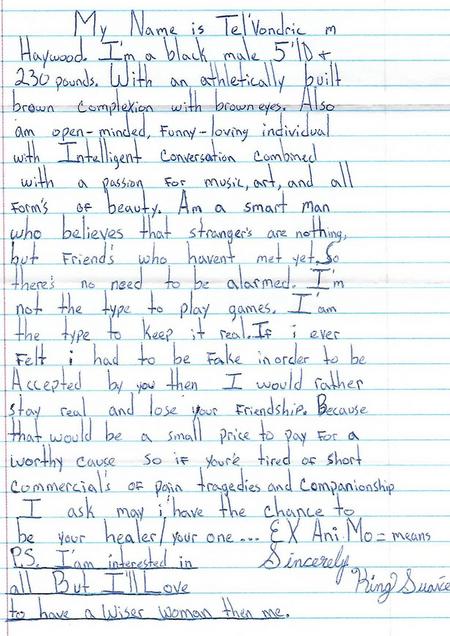 My Name is Tel'Vondric m
Haywood. I'm a black male 5'10 &
230 pounds. With an athletically built
brown complexion with brown eyes. Also
am open-minded, Funny-loving individual
with Intelligent Conversation Combined
with a passion For music, art, and all
Form's of beauty. Am a smart man
who believes that stranger's are nothing,
but Friend's who havent met yet. So
there's no need to be alarmed. I'm
not the type to play games. I'am
the type to keep it real. If i ever
Felt i had to be Fake in order to be
Accepted by you then I would rather
stay real and lose your Friendship. Because
that would be a small price to pay For a
worthy cause so if you're tired of short
Commercial's of pain tragedies and Companionship
I ask may i have the chance to
be your healer/your one... EX Ani.Mo = means
P.S. I'am interested in Sincerely
all But I'll Love King Suavee
to have a Wiser Woman then me.